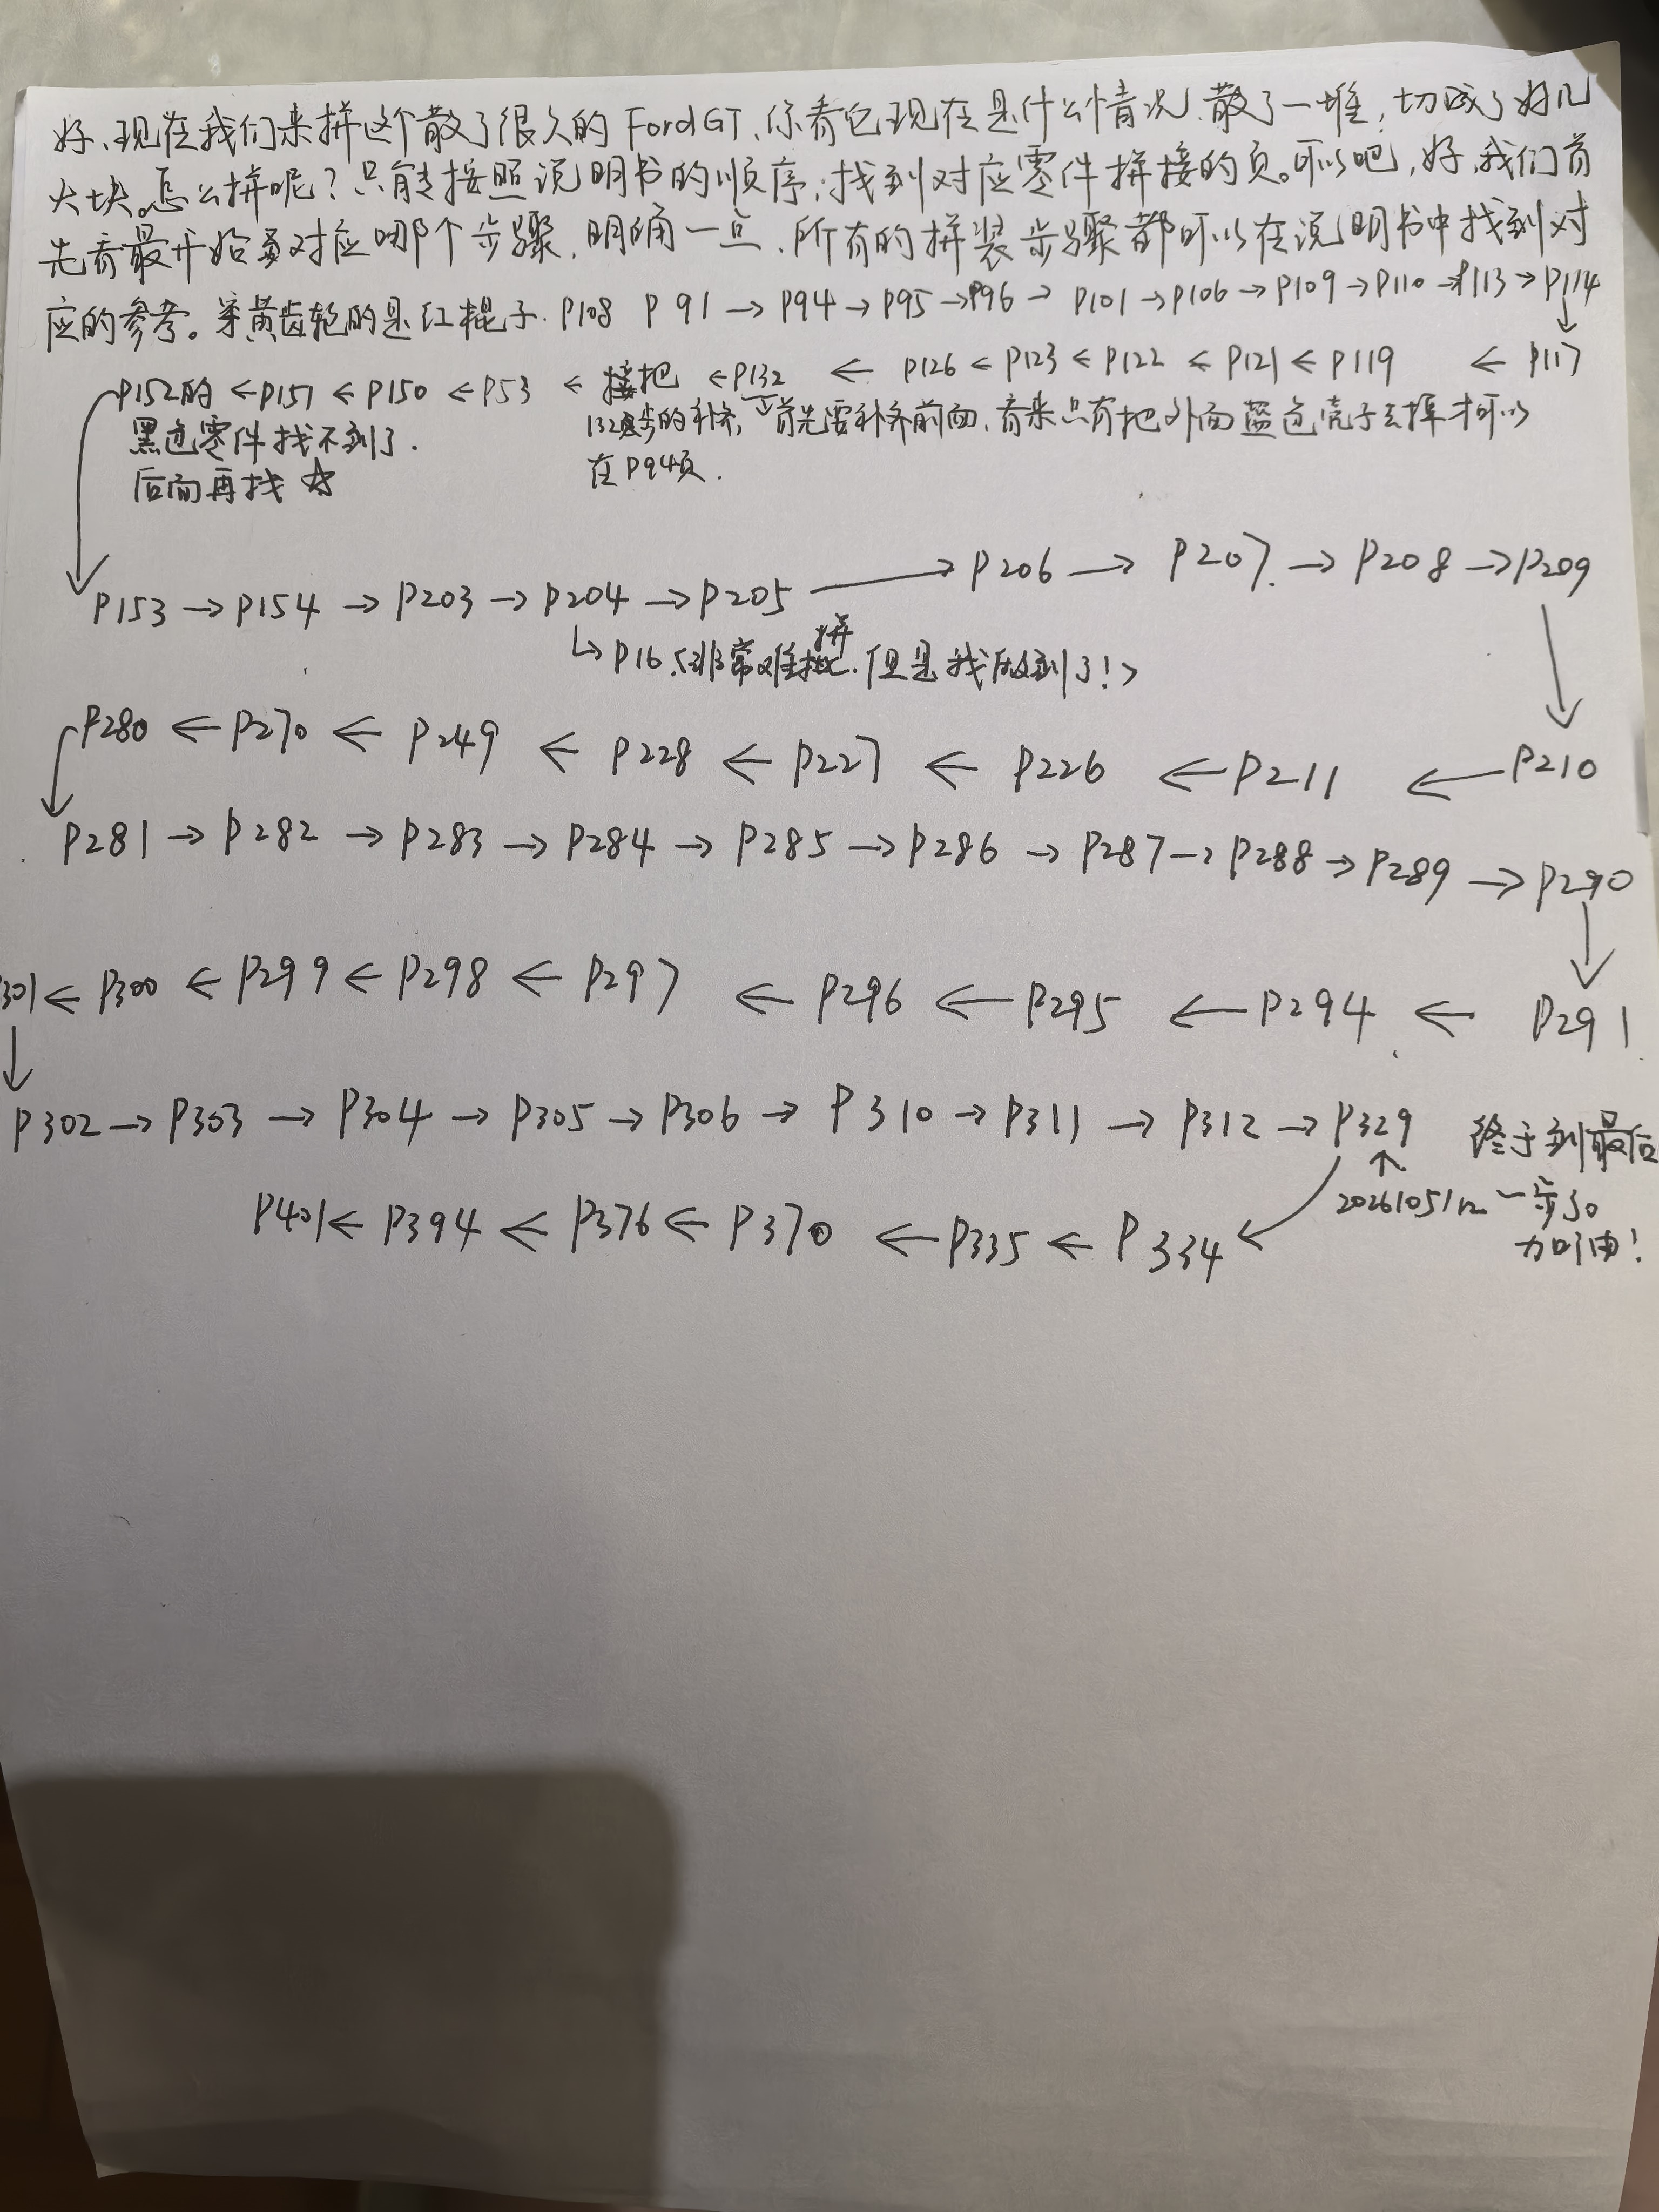 好、现在我们来拼这个散了很久的 FordGT、你看它现在是什么情况、散了一堆，切成了好几
大块。怎么拼呢？只能按照说明书的顺序，找到对应零件拼接的页。可以吧，好，我们首
先看最开始对应哪个步骤，明确一点、所有的拼装步骤都可以在说明书中找到对
应的参考。穿黄齿轮的是红棍子. P108 P91 → P94 → P95 → P96 → P101 → P106 → P109 → P110 → P113 → P114
↓
P152的 ← P151 ← P150 ← P53 ← 接把 ← P132 ← P126 ← P123 ← P122 ← P121 ← P119 ← P117
黑色零件找不到了.
后面再找 ☆
132步的补齐,
在P94页.
首先要补齐前面, 看来只有把外面蓝色壳子去掉才可以
P153 → P154 → P203 → P204 → P205 → P206 → P207 → P208 → P209
拼
↳ P16 非常难 但是我做到了!
↓
P280 ← P270 ← P249 ← P228 ← P227 ← P226 ← P211 ← P210
P281 → P282 → P283 → P284 → P285 → P286 → P287 → P288 → P289 → P290
↓
301 ← P300 ← P299 ← P298 ← P297 ← P296 ← P295 ← P294 ← P291
↓
P302 → P303 → P304 → P305 → P306 → P310 → P311 → P312 → P329
↑
终于到最后
一步了
加油!
P401 ← P394 ← P376 ← P370 ← P335 ← P334